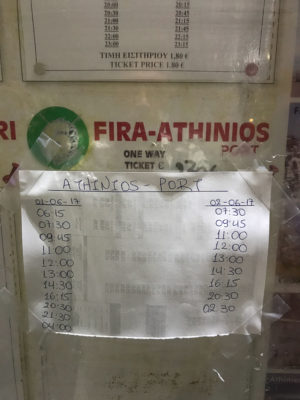 20:00 20:15
20:30 20:45
21:00 21:15
21:30 21:45
22:00 22:15
23:00 23:15
ΤΙΜΗ ΕΙΣΙΤΗΡΙΟΥ 1,80 €
TICKET PRICE 1.80 €
RI FIRA-ATHINIOS
PORT
ONE WAY
TICKET €
ATHINIOS - PORT
01-06-17 02-06-17
06:15 07:30
07:30 09:45
09:45 11:00
11:00 12:00
12:00 13:00
13:00 14:30
14:30 16:15
16:15 20:30
20:30 02:30
21:30
04:00